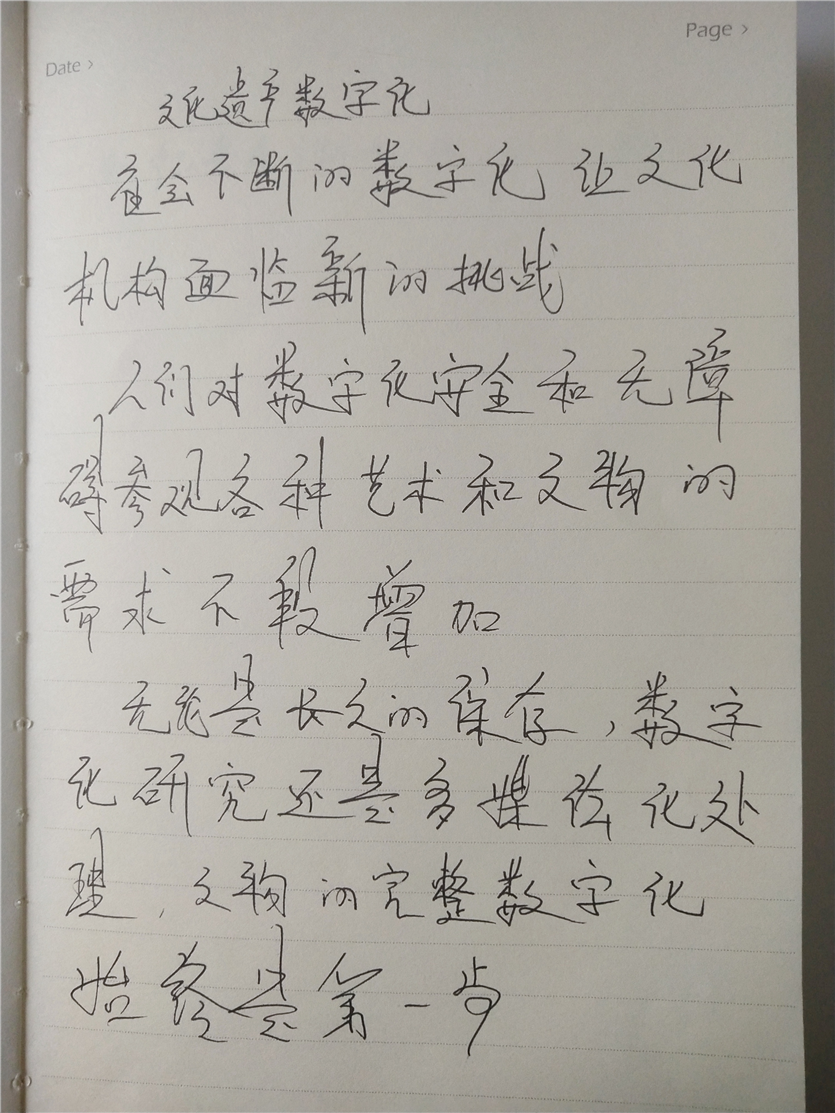 Page >
Date >
文化遗产数字化
社会不断的数字化 让文化
机构面临新的挑战
人们对数字化安全和无障
碍参观各种艺术和文物的
需求不断增加
无论是长久的保存,数字
化研究还是多媒体化处
理,文物的完整数字化
始终是第一步